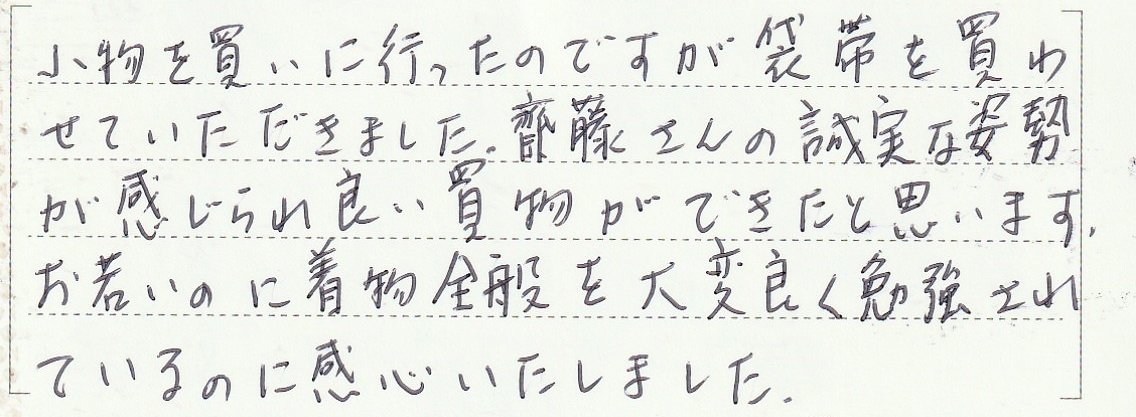 小物を買いに行ったのですが袋帯を買わ
せていただきました。齋藤さんの誠実な姿勢
が感じられ良い買物ができたと思います。
お若いのに着物全般を大変良く勉強され
ているのに感心いたしました。